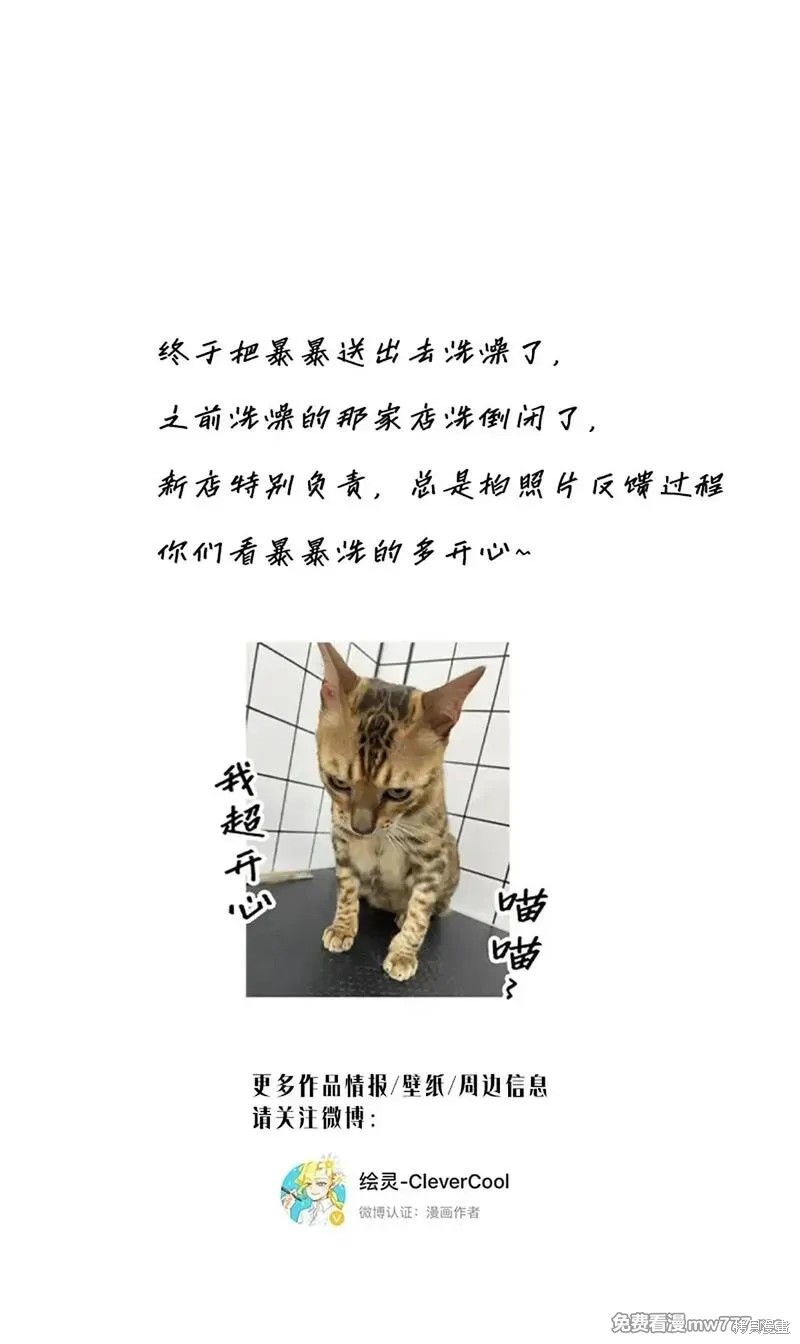 终于把暴暴送出去洗澡了，
之前洗澡的那家店洗倒闭了，
新店特别负责，总是拍照片反馈过程
你们看暴暴洗的多开心~
我超开心
喵喵~
更多作品情报/壁纸/周边信息
请关注微博：
绘灵-CleverCool
微博认证：漫画作者
免费看漫mw777.